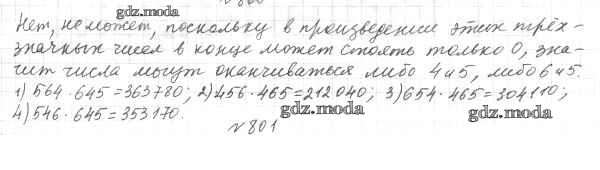 gdz.moda
Нет, не может, поскольку в произведении этих трёх-
значных чисел в конце может стоять только 0, зна-
чит числа могут оканчиваться либо 4 и 5, либо 6 и 5.
1) 564 · 645 = 363780; 2) 456 · 465 = 212040; 3) 654 · 465 = 304110;
4) 546 · 645 = 353170.
gdz.moda
gdz.moda
№ 801